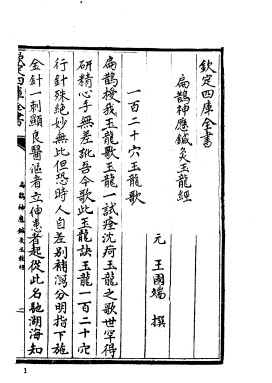 欽定四庫全書
扁鵲神應鍼灸玉龍經
元 王國端 撰
一百二十穴玉龍歌
扁鵲授我玉龍歌玉龍一試痊沈疴玉龍之歌世罕得
研精心手無差訛吾今歌此玉龍訣玉龍一百二十穴
行針殊絶妙無比但恐時人自差别補瀉分明指下施
金針一刺顯良醫傴者立伸患者起從此名馳湖海知
欽定四庫全書
扁鵲神應鍼灸玉龍經
一
1